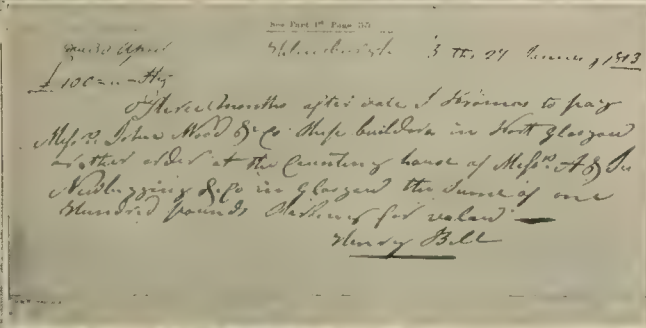 See Part 1st Page 35
Helensburgh 3 the 27 1813
£ 100
Three months after date I Promes to pay
Messrs. John Wood & Co Shepe builders in Port Glasgow
or other order at the Counting house of Messrs. A & Jn
Newbigging & Co in Glasgow the sume of one
Hundred pounds Starling for value
Henry Bell